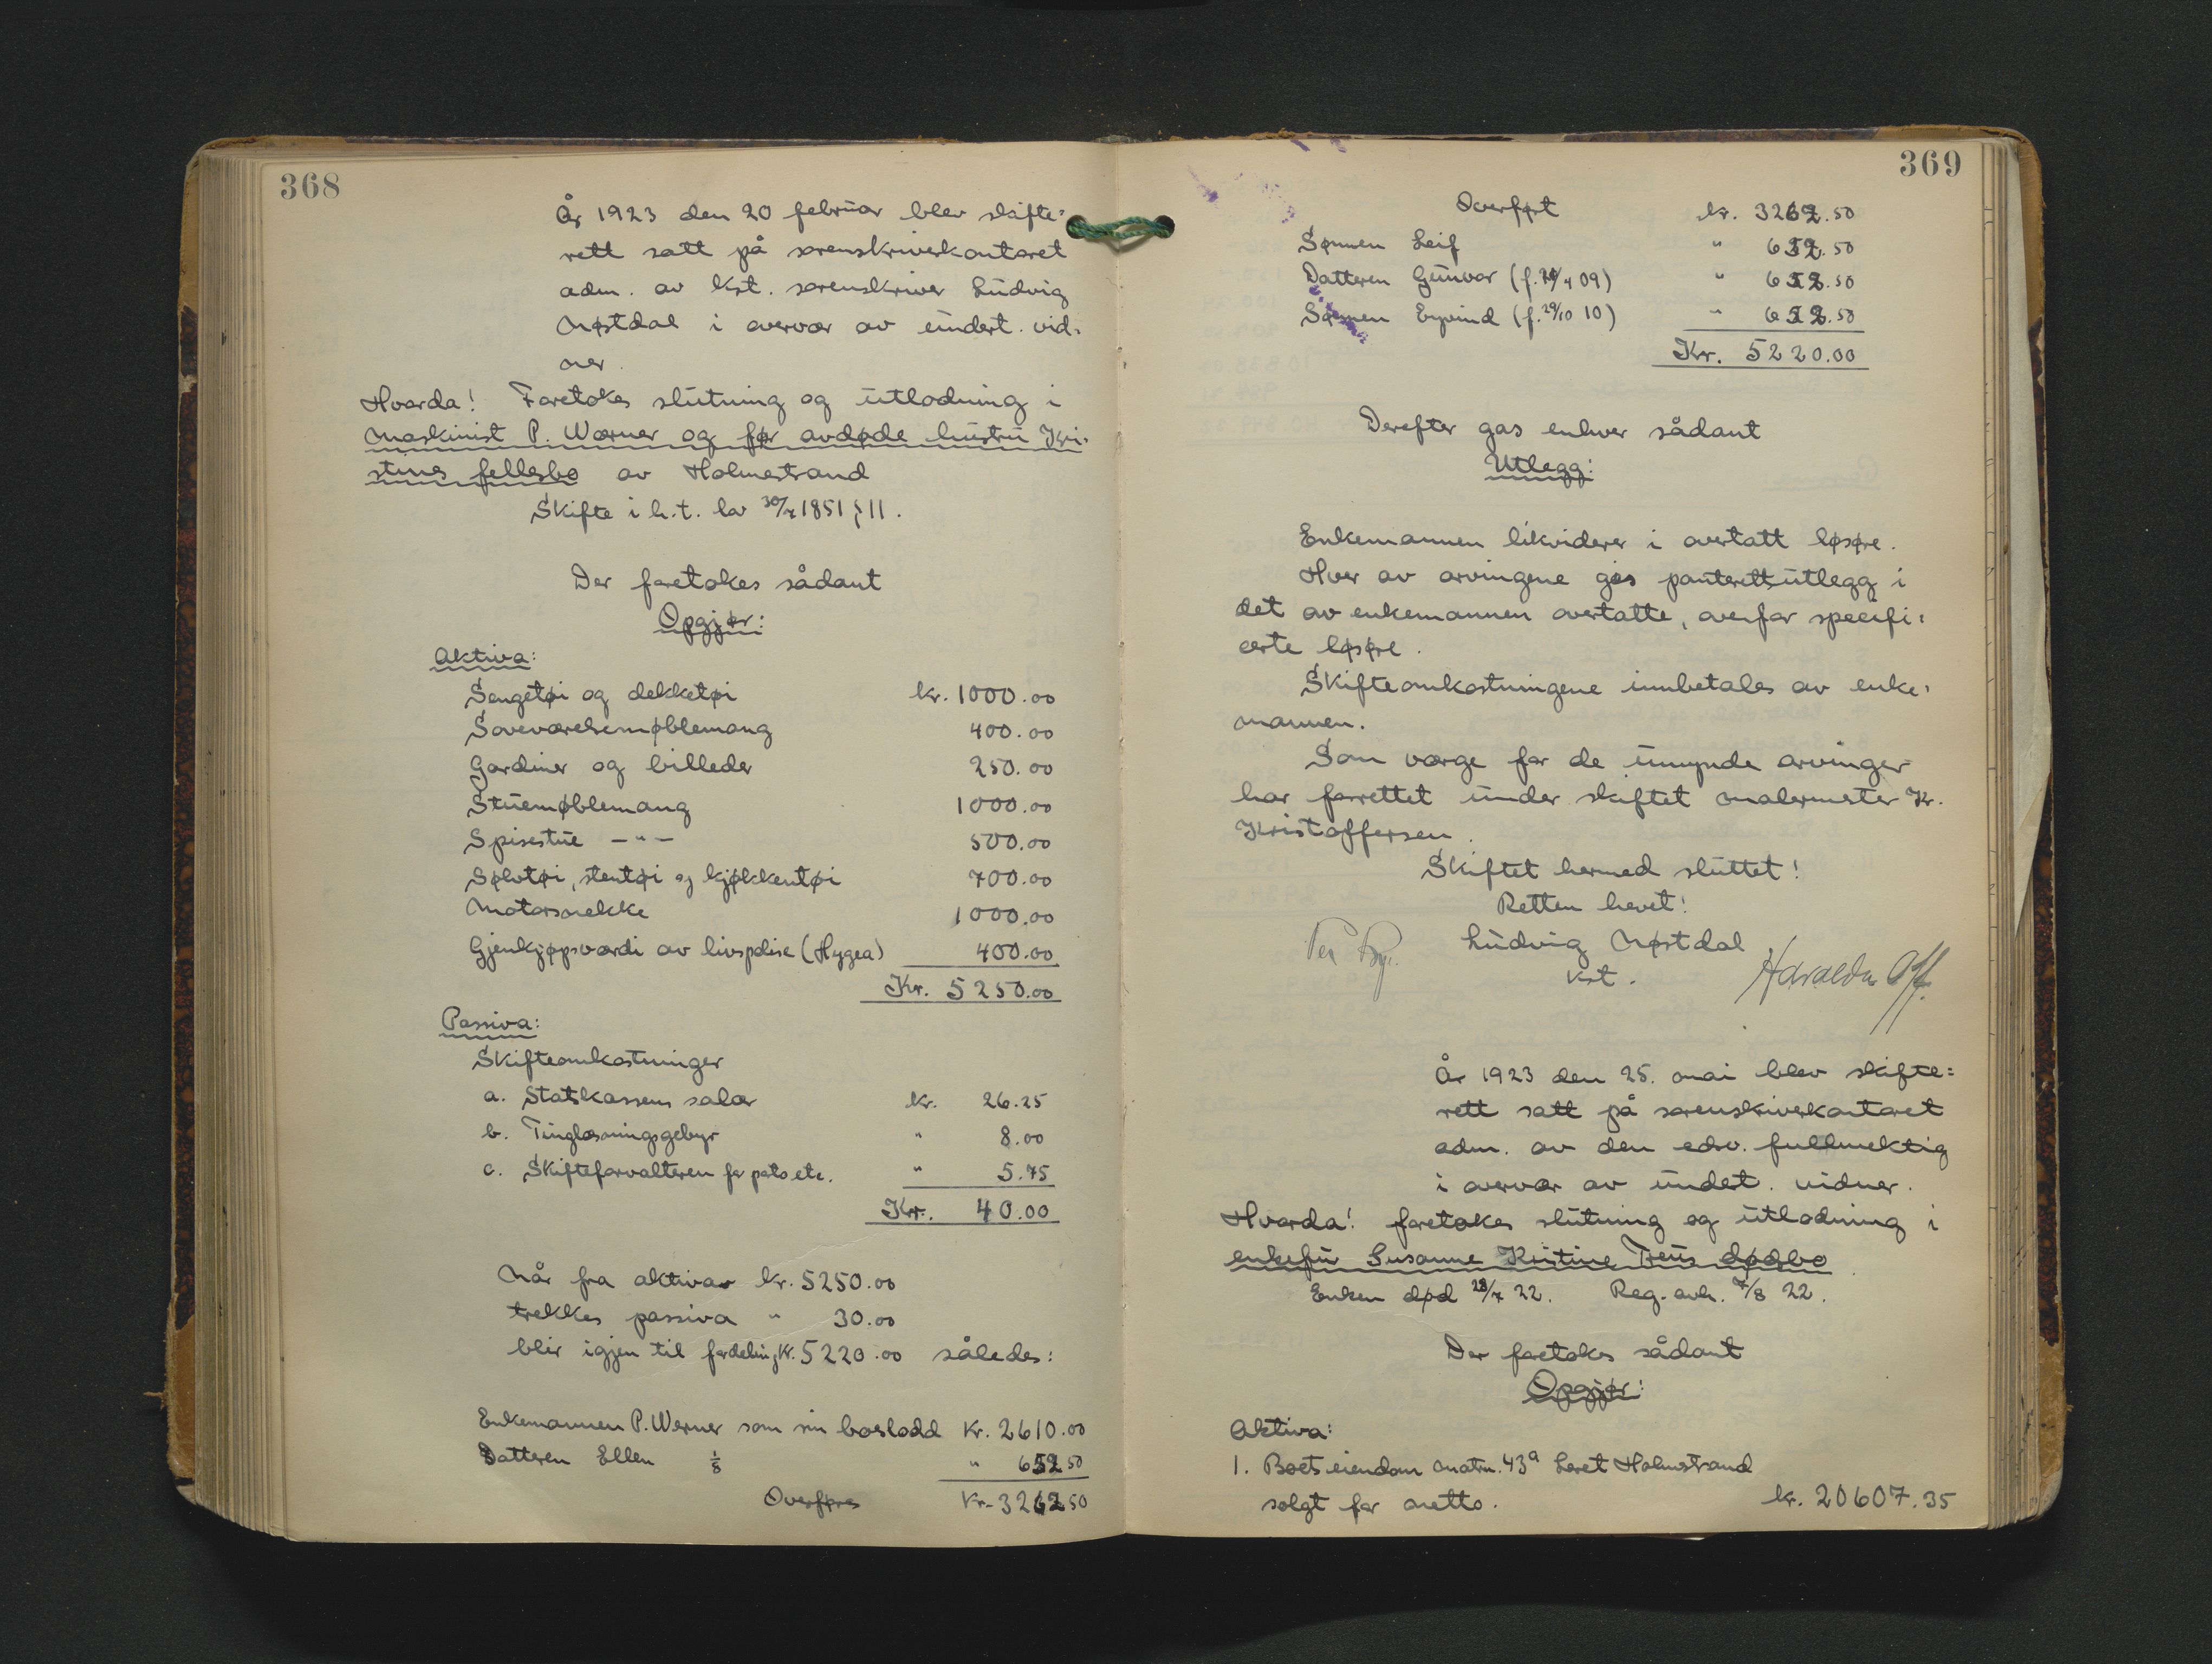 368
År 1923 den 20 februar blev skifte=
rett satt på sorenskriverkontoret
adm. av kst. sorenskriver Ludvig
Nøstdal i overvær av undert. vid=
ner.
Hvorda! Foretokes slutning og utlodning i
maskinist P. Werner og før avdøde hustru Kri=
stines fellesbo av Holmestrand
Skifte i h.t. lov 30/7 1851 § 11.
Der foretokes sådant
Opgjør:
Aktiva:
Sengetøi og dekketøi kr. 1000.00
Soveværelsemøblemang 400.00
Gardiner og billeder 250.00
Stuemøblemang 1000.00
Spisestue —"— 500.00
Sølvtøi, stentøi og kjøkkentøi 700.00
Motorsnekke 1000.00
Gjenkjøpsværdi av livspolise (Hygea) 400.00
Kr. 5250.00
Passiva:
Skifteomkostninger
a. Statskassens salær kr. 26.25
b. Tinglæsningsgebyr " 8.00
c. Skifteforvalteren for porto etc. " 5.75
Kr. 40.00
Når fra aktiva kr. 5250.00
trekkes passiva " 30.00
blir igjen til fordeling Kr. 5220.00 således:
Enkemannen P. Werner som sin boslodd Kr. 2610.00
Datteren Ellen 1/8 " 652.50
Overføres Kr. 3262.50
369
Overført kr. 3262.50
Sønnen Leif " 652.50
Datteren Gunvor (f. /4 09) " 652.50
Sønnen Eyvind (f. 29/10 10) " 652.50
Kr. 5220.00
Derefter gas enhver sådant
Utlegg:
Enkemannen likviderer i overtatt løsøre.
Hver av arvingene gis panterettsutlegg i
det av enkemannen overtatte, ovenfor specifi=
certe løsøre.
Skifteomkostningene innbetales av enke=
mannen.
Som værge for de umynde arvinger
har forrettet under skiftet malermester Kr.
Kristoffersen.
Skiftet hermed sluttet!
Retten hevet!
Ludvig Nøstdal
kst.
År 1923 den 25. mai blev skifte=
rett satt på sorenskriverkontoret
adm. av den edsv. fullmektig
i overvær av undert. vidner.
Hvorda! foretokes slutning og utlodning i
enkefru Susanne Kristine Treus dødsbo.
Enken død 28/7 22. Reg. avh. 7/8 22.
Der foretokes sådant
Opgjør:
Aktiva:
1. Boets eiendom matr. 43a Løret Holmestrand
solgt for netto. kr. 20607.35